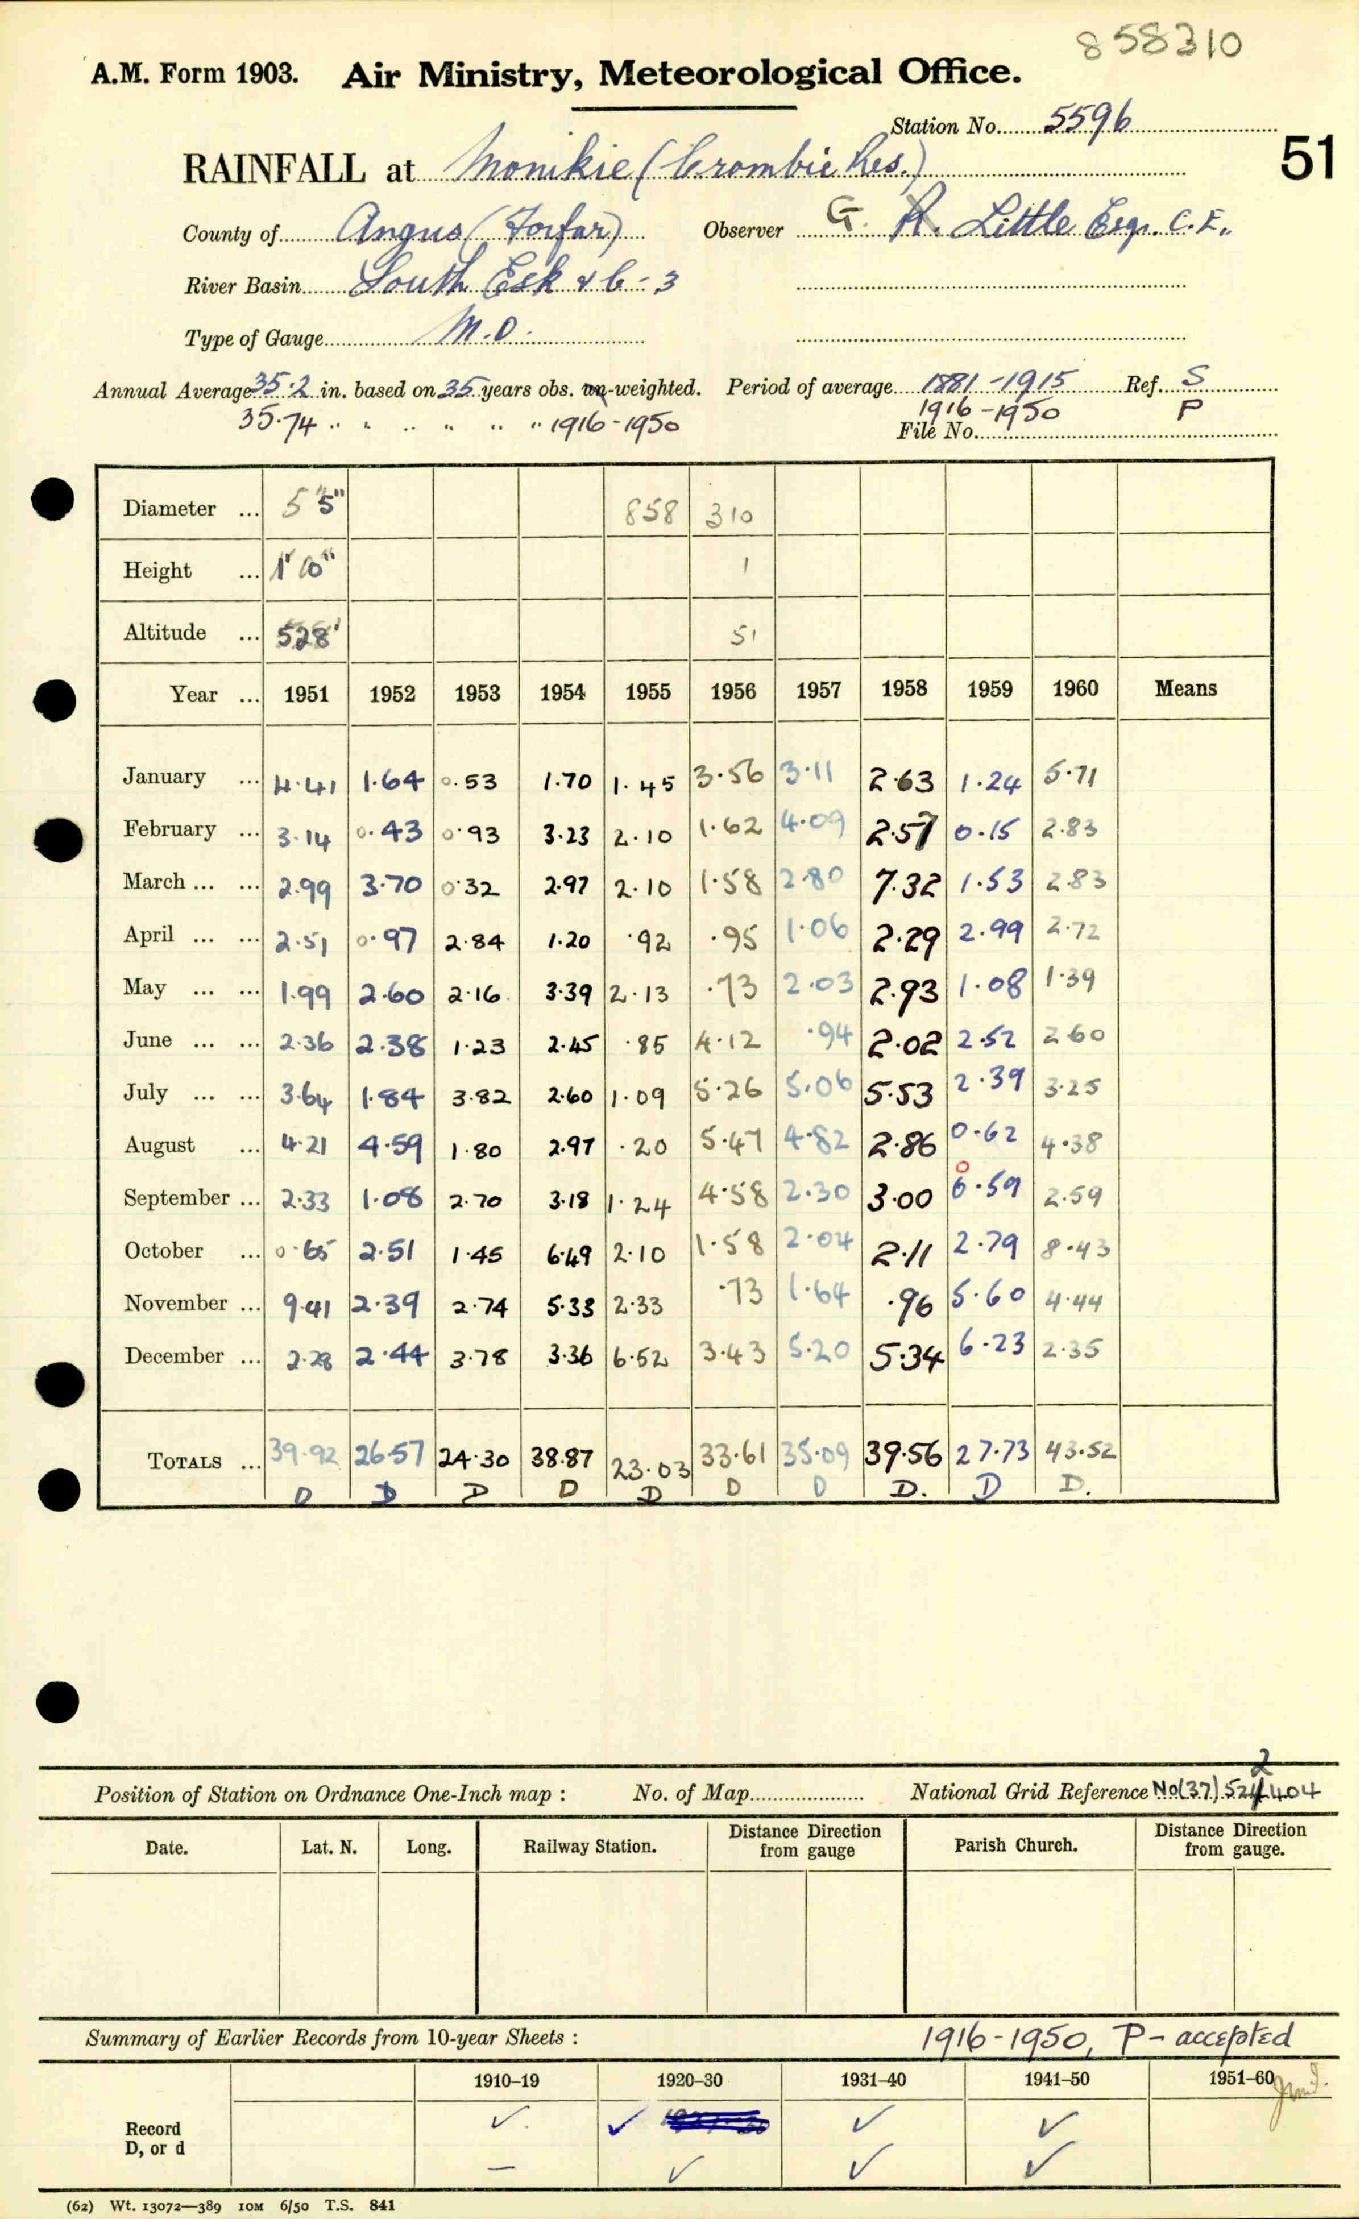 858310
A.M. Form 1903. Air Ministry, Meteorological Office.
Station No. 5596
51
RAINFALL at Monikie (Crombie Res.)
County of Angus (Forfar) Observer G. R. Little Esqr. C.E.,
River Basin South Esk & C-3
Type of Gauge M.O.
Annual Average 35.2 in. based on 35 years obs. un-weighted. Period of average 1881-1915 Ref. S
35.74 " " " " " " 1916-1950 1916-1950 P
File No.
Diameter ... 5 5" 858 310
Height ... 1' 0" 1
Altitude ... 528' 51
Year ... 1951 1952 1953 1954 1955 1956 1957 1958 1959 1960 Means
January ... 4.41 1.64 0.53 1.70 1.45 3.56 3.11 2.63 1.24 5.71
February ... 3.14 0.43 0.93 3.23 2.10 1.62 4.09 2.57 0.15 2.83
March ... ... 2.99 3.70 0.32 2.97 2.10 1.58 2.80 7.32 1.53 2.83
April ... ... 2.51 0.97 2.84 1.20 .92 .95 1.06 2.29 2.99 2.72
May ... ... 1.99 2.60 2.16 3.39 2.13 .73 2.03 2.93 1.08 1.39
June ... ... 2.36 2.38 1.23 2.45 .85 4.12 .94 2.02 2.52 2.60
July ... ... 3.64 1.84 3.82 2.60 1.09 5.26 5.06 5.53 2.39 3.25
August ... 4.21 4.59 1.80 2.97 .20 5.47 4.82 2.86 0.62 4.38
0
September ... 2.33 1.08 2.70 3.18 1.24 4.58 2.30 3.00 0.59 2.59
October ... 0.65 2.51 1.45 6.49 2.10 1.58 2.04 2.11 2.79 8.43
November ... 9.41 2.39 2.74 5.33 2.33 .73 1.64 .96 5.60 4.44
December ... 2.28 2.44 3.78 3.36 6.52 3.43 5.20 5.34 6.23 2.35
TOTALS ... 39.92 26.57 24.30 38.87 23.03 33.61 35.09 39.56 27.73 43.52
D D D D D D D D. D D.
2
Position of Station on Ordnance One-Inch map : No. of Map National Grid Reference No(37) 524404
Date. Lat. N. Long. Railway Station. Distance Direction from gauge Parish Church. Distance Direction from gauge.
Summary of Earlier Records from 10-year Sheets : 1916-1950, P - accepted
1910–19 1920–30 1931–40 1941–50 1951–60
Record ✓. ✓ ✓ ✓
D, or d — ✓ ✓ ✓
(62) Wt. 13072—389 10M 6/50 T.S. 841